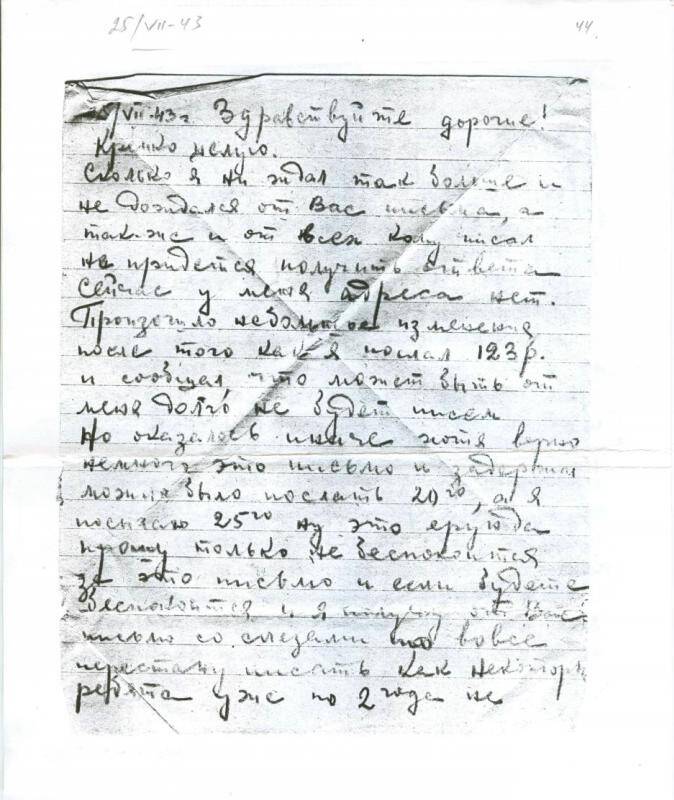 25/VII-43
44.
25/VII-43г Здравствуйте дорогие!
Крепко целую.
Сколько я ни ждал так больше и
не дождался от Вас письма, а
также и от всех кому писал
не придется получить ответа
сейчас у меня адреса нет.
Произошло небольшое изменение
после того как я послал 123 р.
и сообщал, что может быть от
меня долго не будет писем
Но оказалось иначе хотя верно
немного это письмо и задержал
можно было послать 20го, а я
посылаю 25го ну это ерунда
прошу только не беспокоится
за это письмо и если будете
беспокоится и я получу от Вас
письмо со слезами то вовсе
перестану писать как некоторы
ребята уже по 2 года не